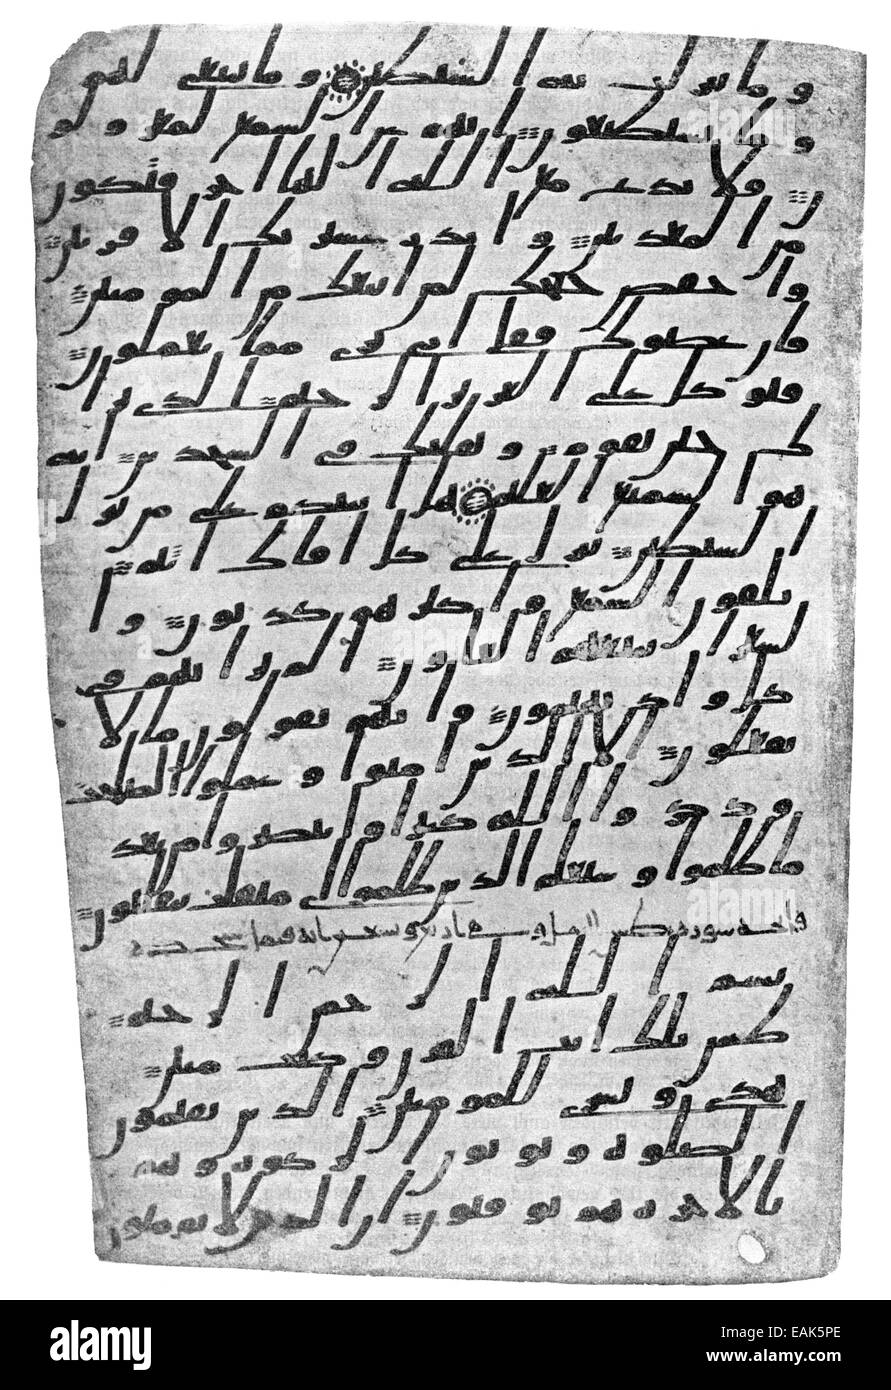 وما تنزلت به الشيطين وما ينبغى لهم
وما يستطيعون انهم عن السمع لمعزولو
ن فلا تدع مع الله الها اخر فتكون
من المعذبين وانذر عشيرتك الاقربين
واخفض جناحك لمن اتبعك من المومنين
فان عصوك فقل انى برى مما تعملون
فتوكل على العزيز الرحيم الذى ير
ك حين تقوم وتقلبك فى السجدين انه
هو السميع العليم هل انبيكم على من تنز
ل الشيطين تنزل على كل افاك اثيم
يلقون السمع واكثرهم كذبون وا
لشعرا يتبعهم الغاون الم تر انهم فى
كل واد يهيمون وانهم يقولون ما لا
يفعلون الا الذين امنوا وعملوا الصلحت
وذكروا الله كثيرا وانتصروا من بعد
ما ظلموا وسيعلم الذين ظلموا اى منقلب ينقلبون
فاتحة سورة طس النمل
بسم الله الرحمن الرحيم
طس تلك ايت القرن وكتب مبين
هدى وبشرى للمومنين الذين يقيمون
الصلوة ويوتون الزكوة وهم
بالاخرة هم يوقنون ان الذين لا يومنون
alamy
EAK5PE
www.alamy.com